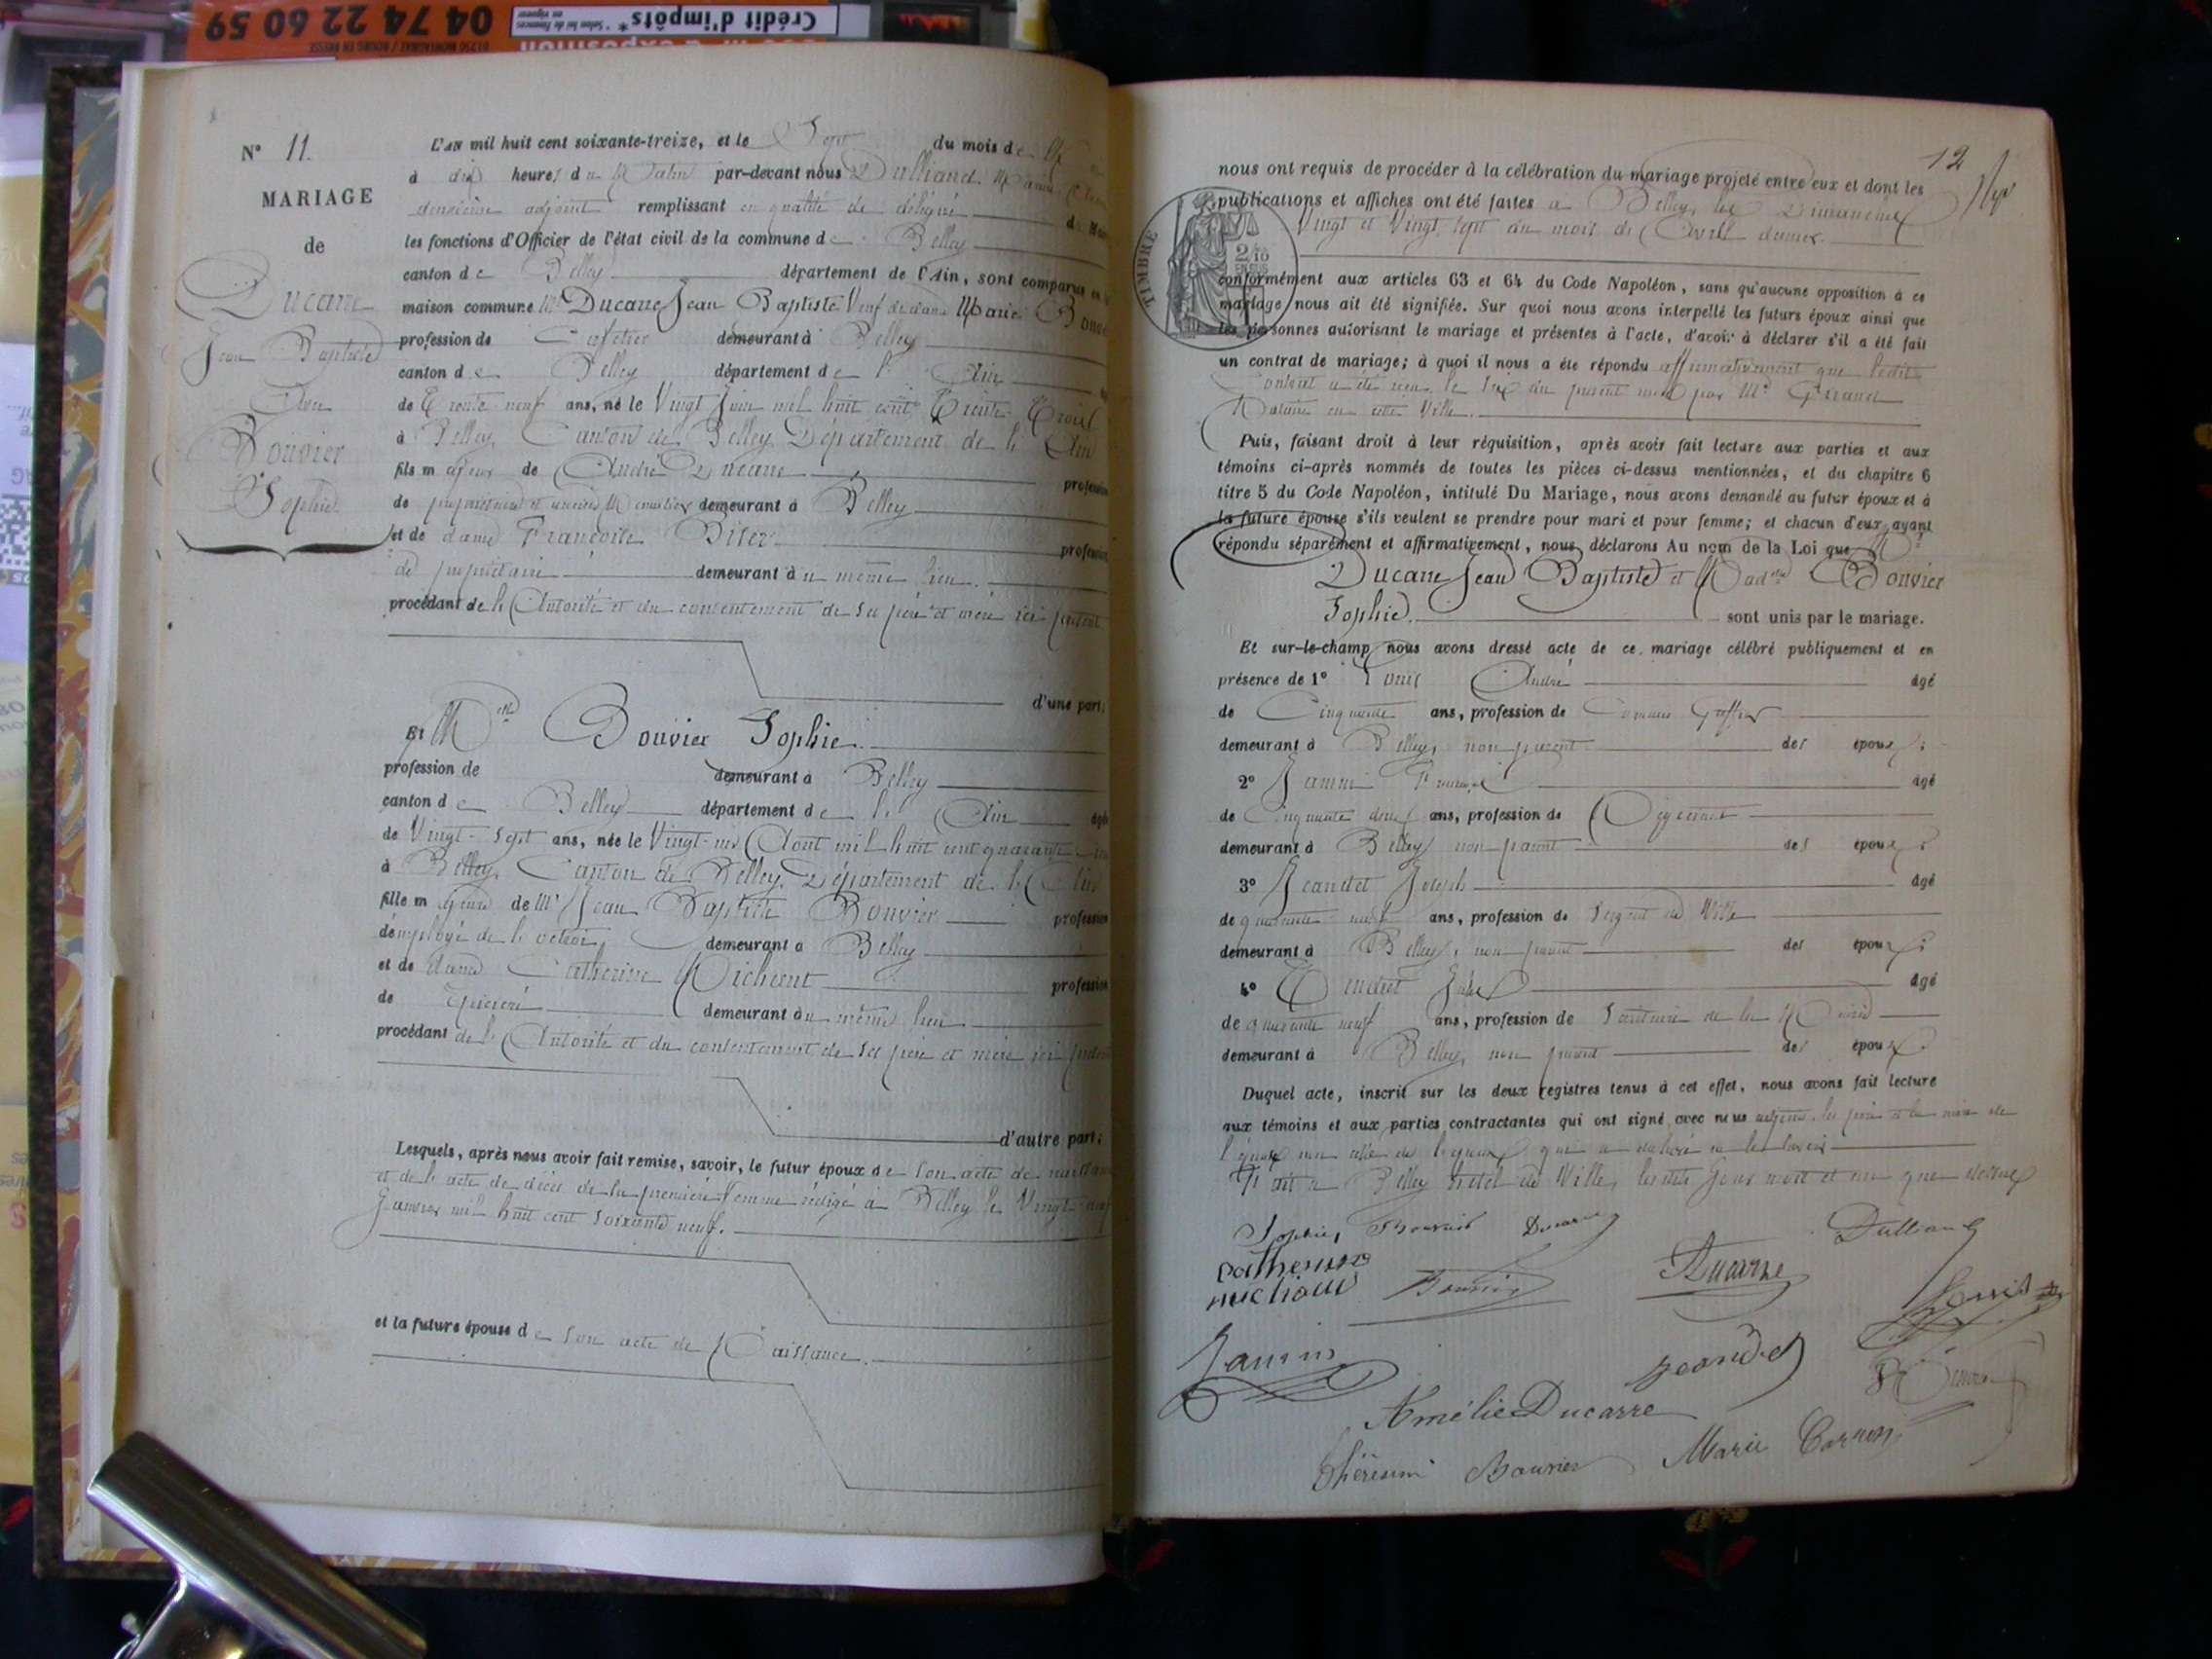 04 74 22 60 59
01250 MONTAGNAT / BOURG EN BRESSE
Crédit d'impôts*
* Selon loi de Finances en vigueur
N° 11.
MARIAGE
de
Ducarre
Jean Baptiste
Avec
Bouvier
Sophie
L'AN mil huit cent soixante-treize, et le Sept du mois de
à dix heures du Matin par-devant nous Dulliand
deuxième adjoint remplissant en qualité de délégué
les fonctions d'Officier de l'état civil de la commune de Belley
canton de Belley département de l'Ain, sont comparus en
maison commune Mr Ducarre Jean Baptiste Veuf de dame Marie
profession de Cafetier demeurant à Belley
canton de Belley département de l'Ain
de Trente neuf ans, né le Vingt Juin mil huit cent Trente Trois
à Belley, Canton de Belley, Département de l'Ain
fils majeur de André Ducarre profession
de propriétaire et ancien demeurant à Belley
et de dame Françoise profession
de propriétaire demeurant au même lieu.
procédant de l'Autorité et du consentement de ses père et mère ici présents
d'une part;
Et Melle Bouvier Sophie
profession de demeurant à Belley
canton de Belley département de l'Ain âgée
de Vingt-Sept ans, née le Vingt-un Août mil huit cent quarante
à Belley, Canton de Belley, Département de l'Ain
fille majeure de Mr Jean Baptiste Bouvier profession
d'employé de l'octroi, demeurant à Belley
et de dame Catherine profession
de demeurant au même lieu
procédant de l'Autorité et du consentement de ses père et mère ici présents
d'autre part;
Lesquels, après nous avoir fait remise, savoir, le futur époux de son acte de naissance
et de l'acte de décès de sa première femme rédigé à Belley le Vingt
Janvier mil huit cent soixante neuf.
et la future épouse de son acte de Naissance.
12
nous ont requis de procéder à la célébration du mariage projeté entre eux et dont les
publications et affiches ont été faites à Belley, les Dimanches
Vingt et Vingt Sept du mois de Avril dernier.
TIMBRE
2/10
EN SUS
conformément aux articles 63 et 64 du Code Napoléon, sans qu'aucune opposition à ce
mariage nous ait été signifiée. Sur quoi nous avons interpellé les futurs époux ainsi que
les personnes autorisant le mariage et présentes à l'acte, d'avoir à déclarer s'il a été fait
un contrat de mariage; à quoi il nous a été répondu affirmativement que ledit
Contrat a été reçu le Six du présent mois par Me
Notaire en cette Ville.
Puis, faisant droit à leur réquisition, après avoir fait lecture aux parties et aux
témoins ci-après nommés de toutes les pièces ci-dessus mentionnées, et du chapitre 6
titre 5 du Code Napoléon, intitulé Du Mariage, nous avons demandé au futur époux et à
la future épouse s'ils veulent se prendre pour mari et pour femme; et chacun d'eux ayant
répondu séparément et affirmativement, nous déclarons Au nom de la Loi que Mr
Ducarre Jean Baptiste et Madelle Bouvier
Sophie. sont unis par le mariage.
Et sur-le-champ nous avons dressé acte de ce mariage célébré publiquement et en
présence de 1° Louis André âgé
de Cinquante ans, profession de Commis Greffier
demeurant à Belley, non parent des époux;
2° Jamin âgé
de Cinquante deux ans, profession de
demeurant à Belley non parent des époux;
3° Jeandet Joseph âgé
de quarante neuf ans, profession de Sergent de Ville
demeurant à Belley, non parent des époux;
4° Jules âgé
de quarante neuf ans, profession de Secrétaire de la Mairie
demeurant à Belley, non parent des époux.
Duquel acte, inscrit sur les deux registres tenus à cet effet, nous avons fait lecture
aux témoins et aux parties contractantes qui ont signé avec nous adjoint, les père et la mère de
l'épouse non celle de l'époux qui a déclaré ne le savoir
Fait à Belley hôtel de Ville, lesdits jour mois et an que dessus
Sophie Bouvier Ducarre Dulliand
Catherine
Bouvier Ducarre
Louis
Jamin Jeandet
Amélie Ducarre
Bouvier Marie Carron